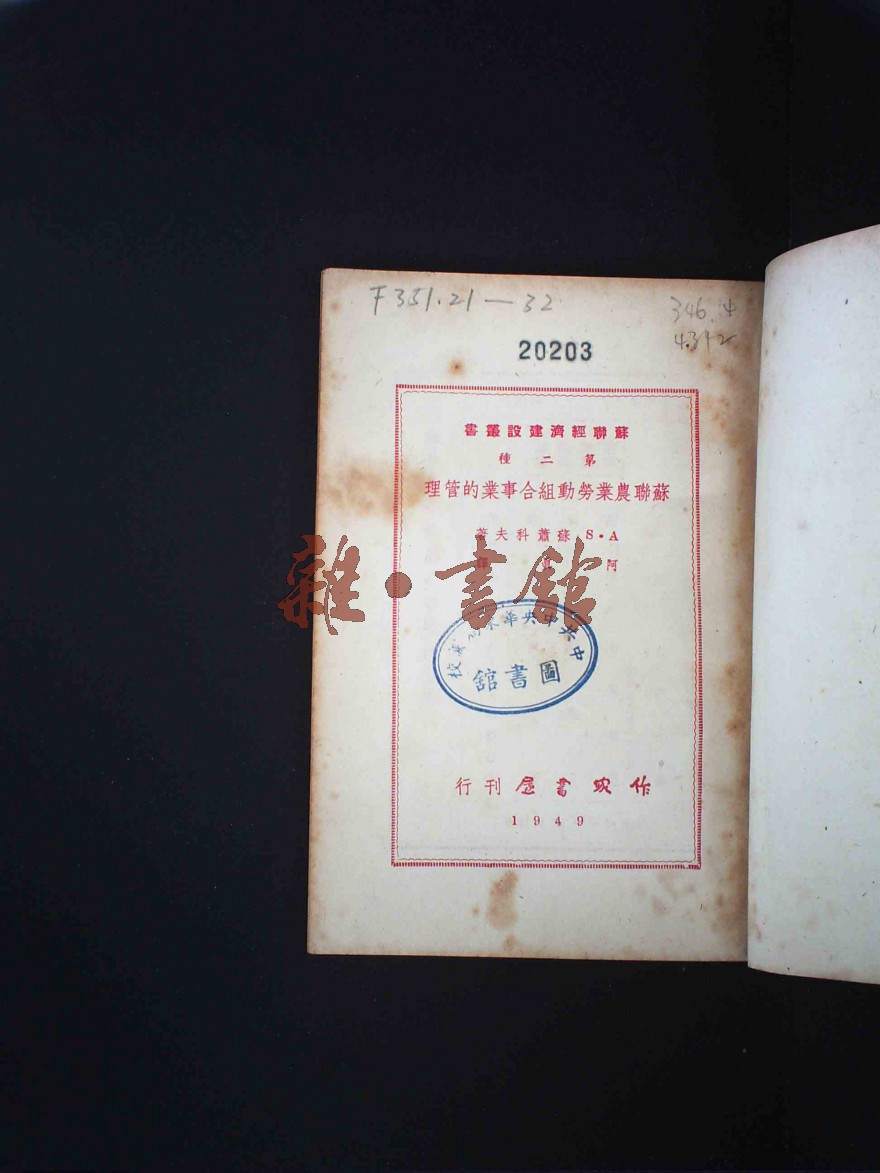 F351.21—32
346.4
4342
20203
蘇聯經濟建設叢書
第二種
蘇聯農業勞動組合事業的管理
A·S 蘇蕭科夫著
阿 譯
雜·書館
中央中央華東
校
圖書館
作家書屋刊行
1949